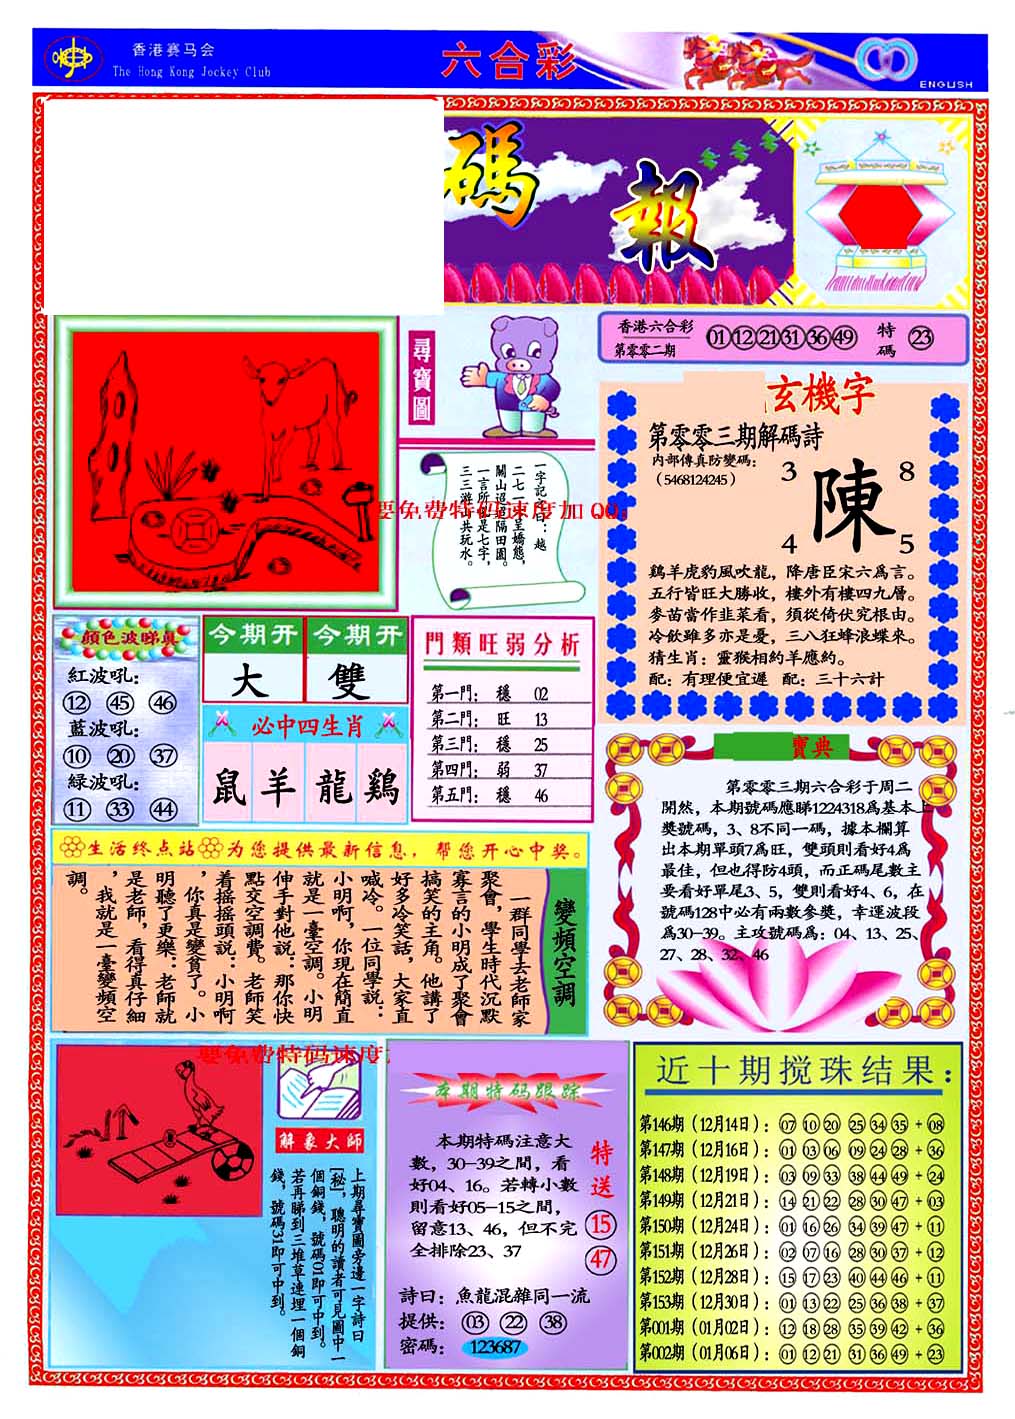 香港赛马会
The Hong Kong Jockey Club
六合彩
ENGLISH
碼
報
尋寶圖
香港六合彩
第零零二期
01 12 21 31 36 49
特碼
23
玄機字
第零零三期解碼詩
内部傳真防變碼:
(5468124245)
3
8
陳
4
5
鷄羊虎豹風吹龍，降唐臣宋六爲言。
五行皆旺大勝收，樓外有樓四九層。
麥苗當作韭菜看，須從倚伏究根由。
冷飲雖多亦是憂，三八狂蜂浪蝶來。
猜生肖：靈猴相約羊應約。
配：有理便宜遲 配：三十六計
一字記之曰：越
二七一
呈嬌態，
關山迢遞隔田園。
一言所
是七字，
三三游山共玩水。
要免费特码速度加 QQ:
顔色波睇真
紅波吼:
12 45 46
藍波吼:
10 20 37
緑波吼:
11 33 44
今期开
今期开
大
雙
必中四生肖
鼠 羊 龍 鷄
門類旺弱分析
第一門： 穩 02
第二門： 旺 13
第三門： 穩 25
第四門： 弱 37
第五門： 穩 46
寶典
第零零三期六合彩于周二
開然，本期號碼應睇1224318爲基本上
獎號碼，3、8不同一碼，據本欄算
出本期單頭7爲旺，雙頭則看好4爲
最佳，但也得防4頭，而正碼尾數主
要看好單尾3、5，雙則看好4、6，在
號碼128中必有兩數參獎，幸運波段
爲30-39。主攻號碼爲：04、13、25、
27、28、32、46
生活终点站
为您提供最新信息，帮您开心中奖。
變頻空調
一群同學去老師家
聚會，學生時代沉默
寡言的小明成了聚會
搞笑的主角。他講了
好多冷笑話，大家直
喊冷。一位同學説：
小明啊，你現在簡直
就是一臺空調。小明
伸手對他説：那你快
點交空調費。老師笑
着摇摇頭説：小明啊
，你真是變貧了。小
明聽了更樂：老師就
是老師，看得真仔細
，我就是一臺變頻空
調。
要免费特码速度
解象大師
上期尋寶圖旁邊一字詩曰
[秘]，聰明的讀者可見圖中一
個銅錢，號碼01即可中到。
若再睇到三堆草連埋一個銅
錢，號碼31即可中到。
本期特码跟踪
本期特碼注意大
數，30-39之間，看
好04、16。若轉小數
則看好05-15之間，
留意13、46，但不完
全排除23、37
特送
15
47
詩曰：魚龍混雜同一流
提供： 03 22 38
密碼： 123687
近十期搅珠结果：
第146期(12月14日)：07 10 20 25 34 35 + 08
第147期(12月16日)：01 03 06 09 24 28 + 36
第148期(12月19日)：03 09 33 38 44 49 + 24
第149期(12月21日)：14 21 22 28 30 47 + 03
第150期(12月24日)：01 16 26 34 39 47 + 11
第151期(12月26日)：02 07 16 28 30 37 + 12
第152期(12月28日)：15 17 23 40 44 46 + 11
第153期(12月30日)：01 13 22 25 36 38 + 37
第001期(01月02日)：12 18 28 35 39 42 + 36
第002期(01月06日)：01 12 21 31 36 49 + 23